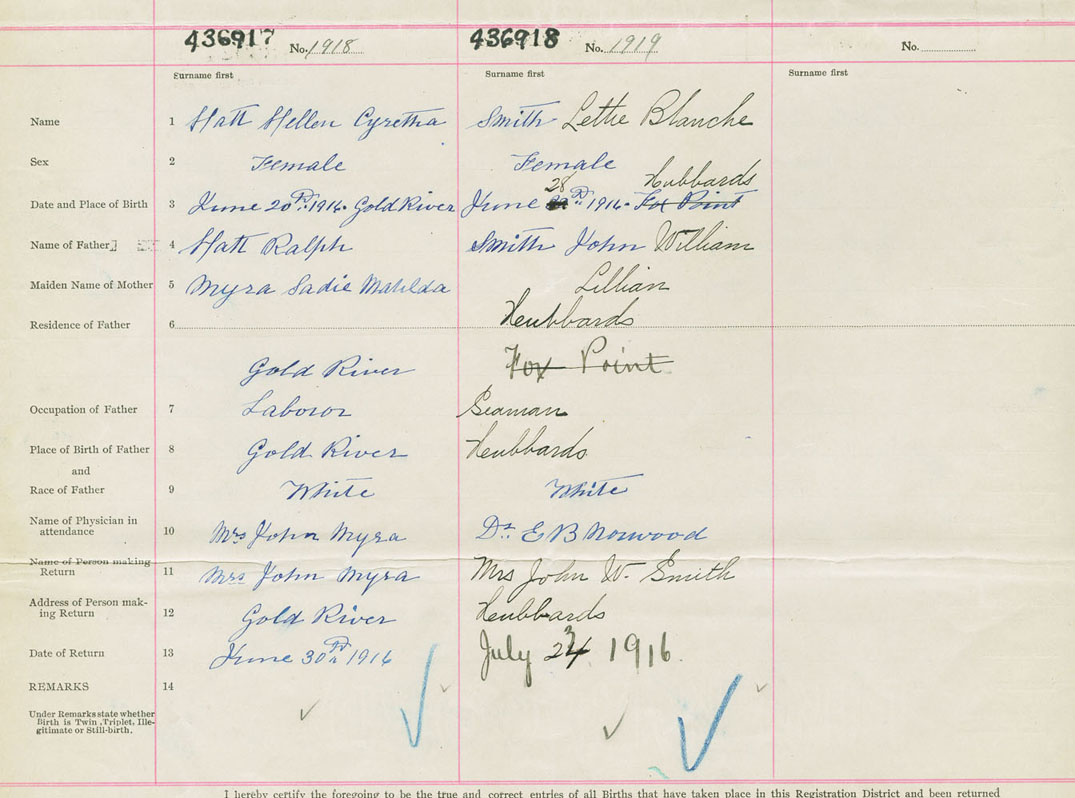 436917 No. 1918 436918 No. 1919 No.
Surname first Surname first Surname first
Name 1 Hatt Hellen Cyretha Smith Lettie Blanche
Sex 2 Female Female
28 Hubbards
Date and Place of Birth 3 June 20th 1916. Gold River June 1916. Fox Point
Name of Father 4 Hatt Ralph Smith John William
Maiden Name of Mother 5 Myra Sadie Matilda Lillian
Residence of Father 6 Hubbards
Gold River Fox Point
Occupation of Father 7 Laboror Seaman
Place of Birth of Father 8 Gold River Hubbards
and
Race of Father 9 White White
Name of Physician in
attendance 10 Mrs John Myra Dr. E B Norwood
Name of Person making
Return 11 Mrs John Myra Mrs John W. Smith
Address of Person mak-
ing Return 12 Gold River Hubbards
Date of Return 13 June 30th 1916 July 1916.
REMARKS 14
Under Remarks state whether
Birth is Twin, Triplet, Ille-
gitimate or Still-birth.
I hereby certify the foregoing to be the true and correct entries of all Births that have taken place in this Registration District and been returned